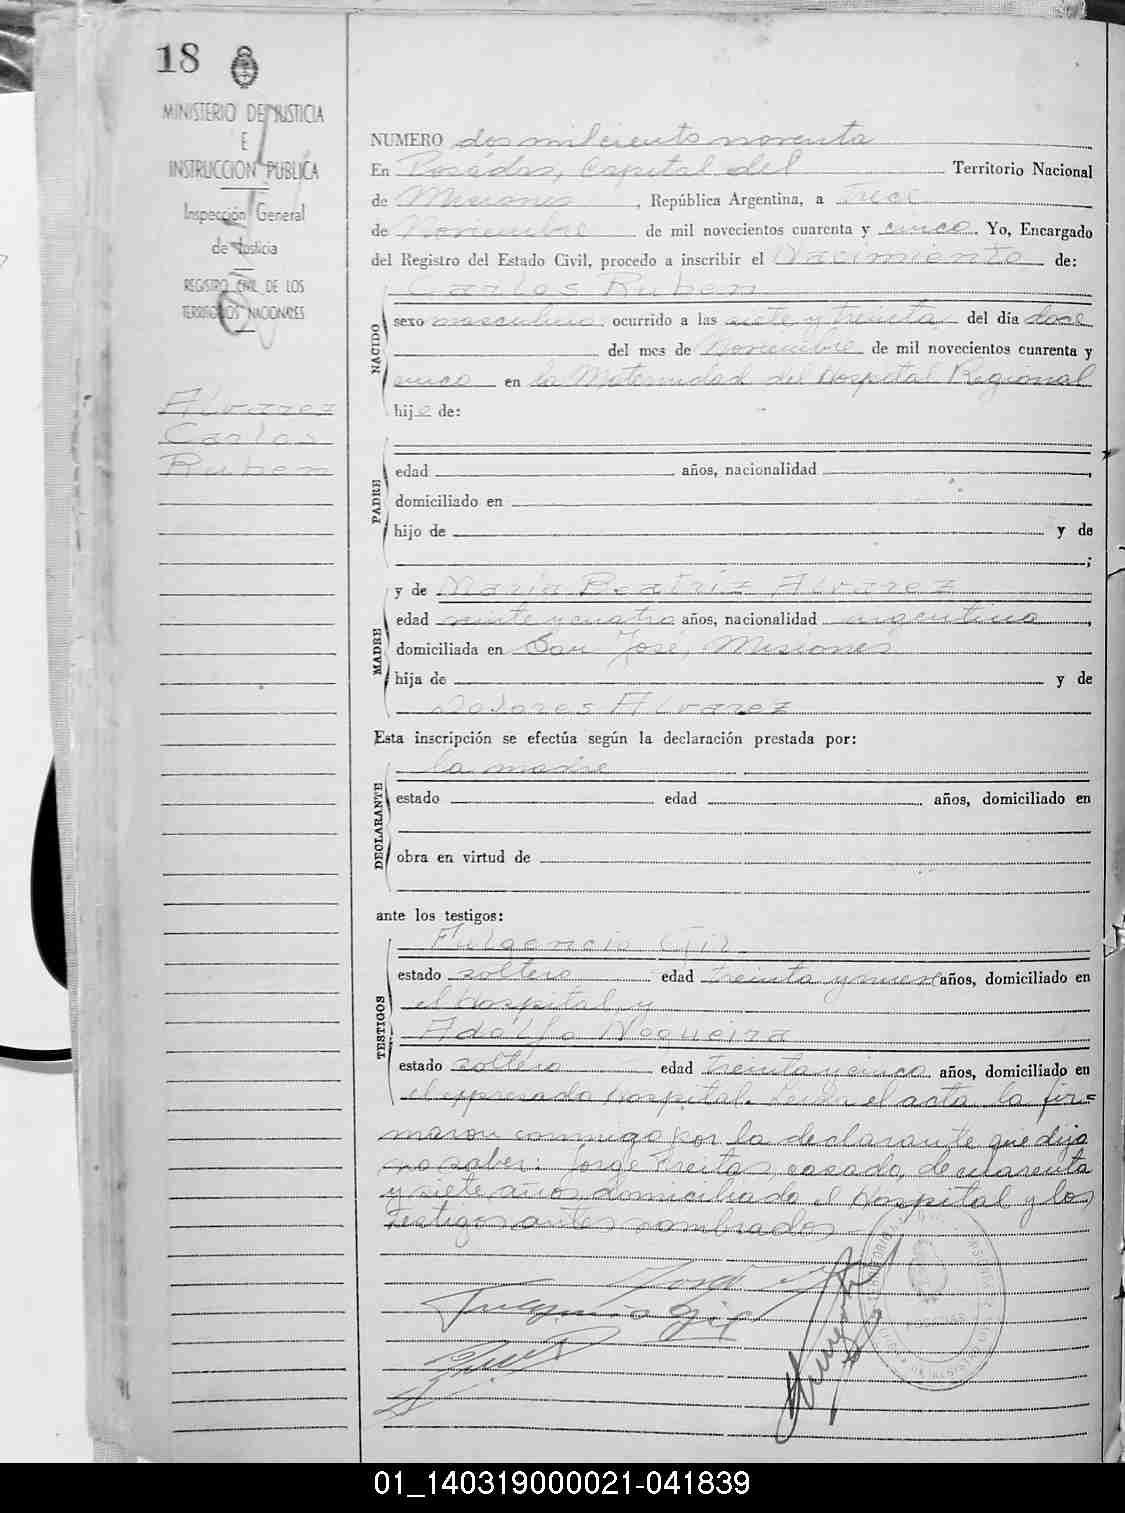 18
MINISTERIO DE JUSTICIA
E
INSTRUCCION PUBLICA
Inspección General
de Justicia
REGISTRO CIVIL DE LOS
TERRITORIOS NACIONALES
Alvarez
Carlos
Ruben
NUMERO dos mil ciento noventa
En Posadas, Capital del Territorio Nacional
de Misiones, República Argentina, a Trece
de Noviembre de mil novecientos cuarenta y cinco. Yo, Encargado
del Registro del Estado Civil, procedo a inscribir el Nacimiento de:
Carlos Ruben
NACIDO
sexo masculino ocurrido a las siete y treinta del día doce
del mes de Noviembre de mil novecientos cuarenta y
cinco en la Maternidad del Hospital Regional
hijo de:
PADRE
edad años, nacionalidad ,
domiciliado en
hijo de y de
;
MADRE
y de Maria Beatriz Alvarez
edad veinte y cuatro años, nacionalidad argentina,
domiciliada en San José, Misiones
hija de y de
Dolores Alvarez
Esta inscripción se efectúa según la declaración prestada por:
DECLARANTE
la madre
estado edad años, domiciliado en
obra en virtud de
ante los testigos:
TESTIGOS
Fulgencio Gil
estado soltero edad treinta y nueve años, domiciliado en
el hospital y
Adolfo Nogueira
estado soltero edad treinta y cinco años, domiciliado en
el expresado hospital. Leida el acta la fir=
maron conmigo por la declarante que dijo
no saber: Jorge Freitas, casado, de cuarenta
y siete años domiciliado el hospital y los
testigos antes nombrados
Fulgencio Gil
01_140319000021-041839